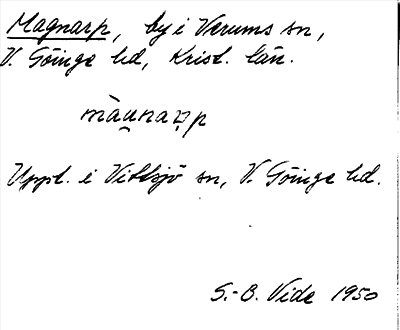 Magnarp, by i Verums sn,
V. Göinge hd, Krist. län.
màu̯naꝛ̣p
Uppt. i Vittsjö sn, V. Göinge hd.
S.-B. Vide 1950